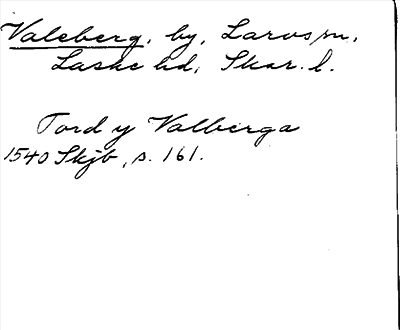 Valeberg, by, Larvs sn,
Laske hd, Skar. l.
Tord y Valberga
1540 Skjb, s. 161.